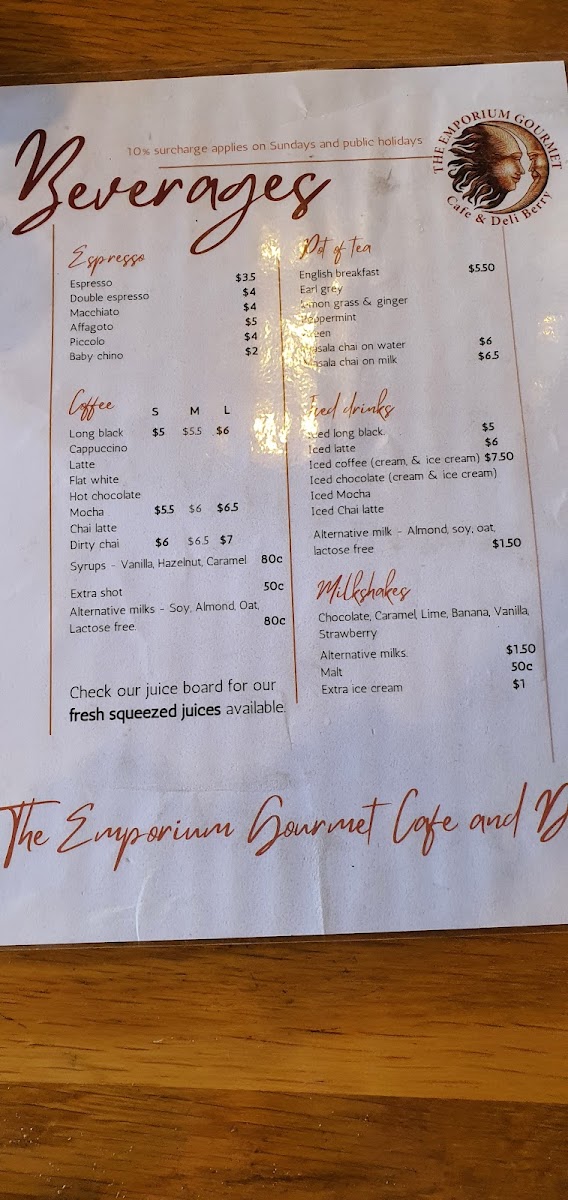 Beverages
10% surcharge applies on Sundays and public holidays
THE EMPORIUM GOURMET
Cafe & Deli Berry
Espresso
Espresso $3.5
Double espresso $4
Macchiato $4
Affagoto $5
Piccolo $4
Baby chino $2
Coffee S M L
Long black $5 $5.5 $6
Cappuccino
Latte
Flat white
Hot chocolate
Mocha $5.5 $6 $6.5
Chai latte
Dirty chai $6 $6.5 $7
Syrups - Vanilla, Hazelnut, Caramel 80c
Extra shot 50c
Alternative milks - Soy, Almond, Oat,
Lactose free. 80c
Check our juice board for our
fresh squeezed juices available.
Pot of tea
English breakfast $5.50
Earl grey
Lemon grass & ginger
Peppermint
Green
Masala chai on water $6
Masala chai on milk $6.5
Iced drinks
Iced long black. $5
Iced latte $6
Iced coffee (cream, & ice cream) $7.50
Iced chocolate (cream & ice cream)
Iced Mocha
Iced Chai latte
Alternative milk - Almond, soy, oat,
lactose free $1.50
Milkshakes
Chocolate, Caramel, Lime, Banana, Vanilla,
Strawberry
Alternative milks. $1.50
Malt 50c
Extra ice cream $1
The Emporium Gourmet Cafe and D